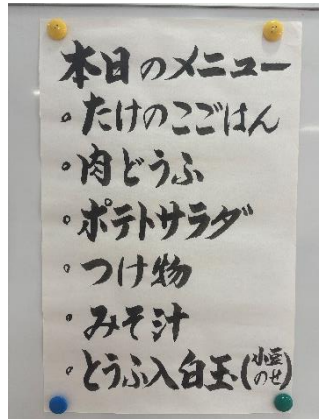 本日のメニュー
。たけのこごはん
。肉どうふ
。ポテトサラダ
。つけ物
。みそ汁
。とうふ入白玉(小豆のせ)